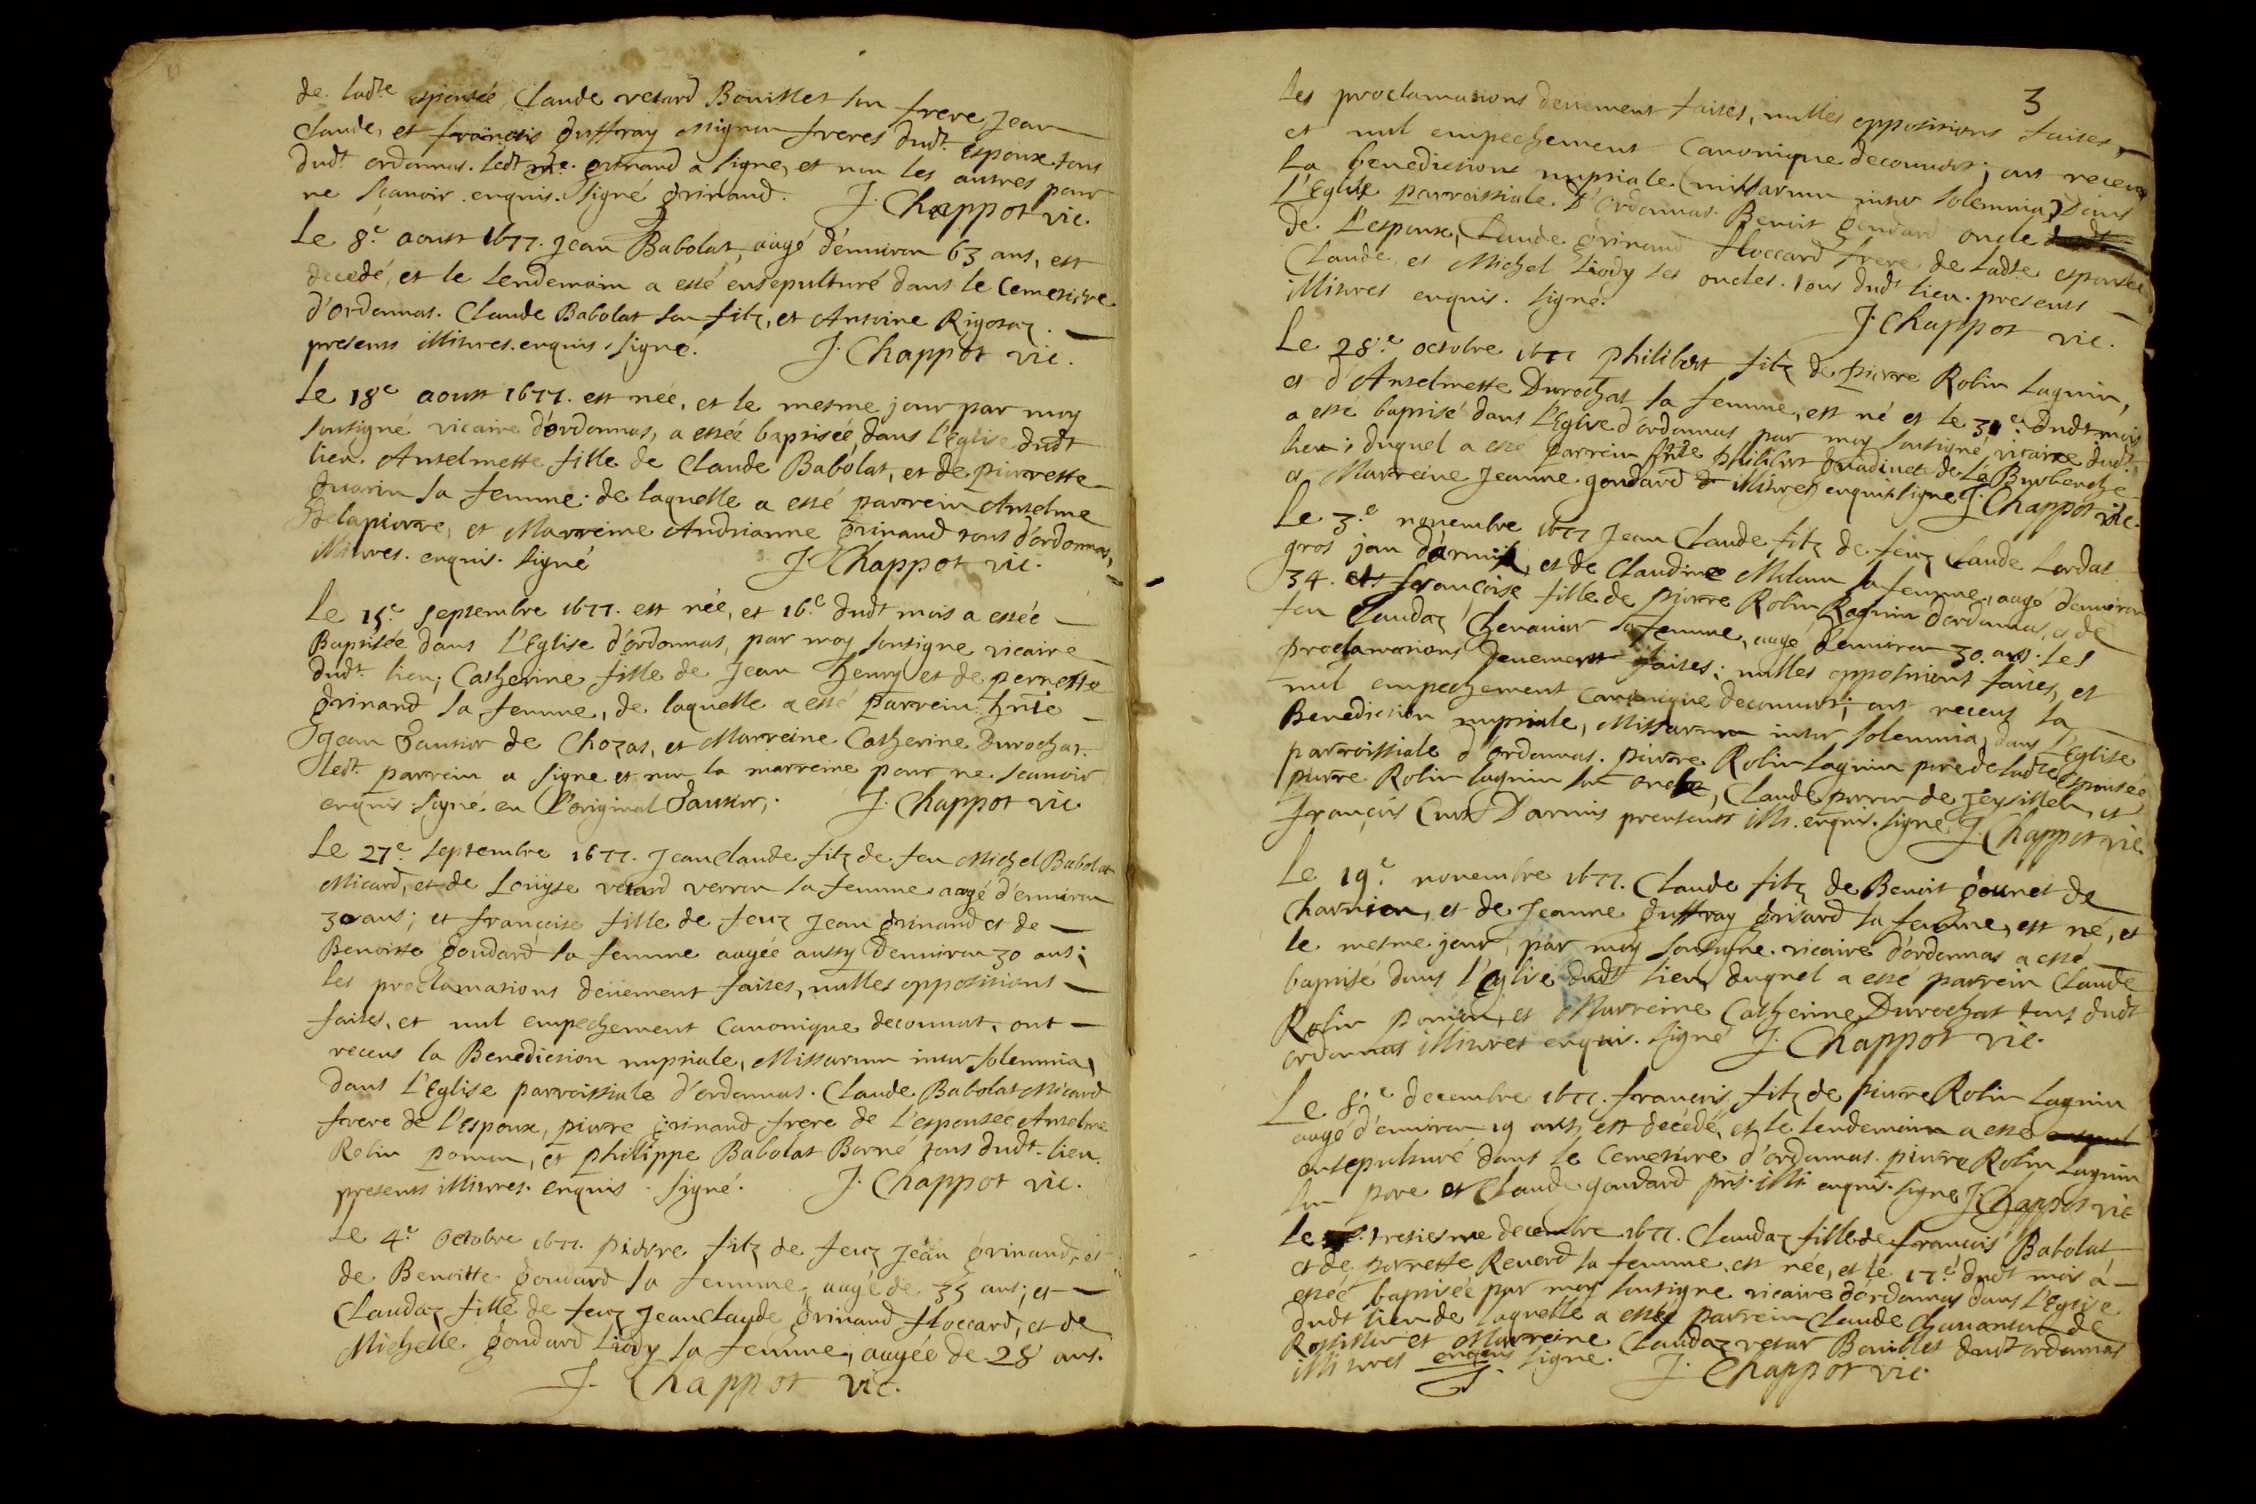 de ladte espousée, Claude retard Bouillet son frere Jean
Claude, et françois Guffray Mignon freres dudt espoux tous
dudt ordonnas. ledt me grinand a signe, et non les autres pour
ne sçavoir. enquis. signé grinand. J. Chappot vic.
Le 8e. aoust 1677. Jean Babolat, aagé d'environ 63 ans, est
decedé, et le lendemain a esté ensepulturé dans le cemetiere
d'ordonnas. Claude Babolat son filz, et Antoine Rigotaz. —
presents illitres. enquis. signé. J. Chappot vic.
Le 18e aoust 1677. est née, et le mesme jour par moy
sousigné vicaire d'ordonnas, a estée baptisée, dans l'eglise dudt
lieu. Anselmette fille de Claude Babolat, et de pierrette
Guarin sa femme. de laquelle a esté parrein Anselme
Delapierre, et Marreine Andrianne grinand tous d'ordonnas,
illitres. enquis. signé J. Chappot vic.
Le 15e septembre 1677. est née, et 16e dudt mois a estée —
Baptisée dans l'Eglise d'ordonnas, par moy sousigne vicaire
dudt lieu; Catherine fille de Jean henry et de pernette
Grinand sa femme, de laquelle a esté parrein hnte —
Jean Fautier de Chozas, et Marreine Catherine Durochat.
ledt. parrein a signe et non la marreine pour ne scavoir
enquis signé. en l'original Fautier. J. Chappot vic
Le 27e septembre 1677. Jeanclaude filz de feu Michel Babolat
Micard, et de Loüyse retard verron sa femme aagé d'environ
30 ans; et françoise fille de feuz Jean grinand et de —
Benoitte goudard sa femme aagée aussy d'environ 30 ans;
les proclamations deüement faites, nulles oppositions —
faites, et nul empechement Canonique decouvert, ont —
receus la Benediction nuptiale, Missarum inter solemnia,
dans l'Eglise parroissiale d'ordonnas. Claude Babolat Micard
frere de l'espoux, pierre grinand frere de l'espousee Anselme
Robin pomun, et philippe Babolat Borné tous dudt. lieu.
presents illitres. enquis. signé. J. Chappot vic.
Le 4e. octobre 1677. pierre filz de feuz Jean grinand, et
de Benoitte goudard sa femme, aagé de 35 ans; et —
Claudaz fille de feuz Jeanclaude grinand floccard, et de
Michelle. goudard Liody sa femme, aagée de 28 ans.
J. Chappot vic.
3
Les proclamations deuement faites, nulles oppositions faites, —
et nul empechement Canonique decouvert; ont receu
La benedictions nuptiale (missarum inter solemnia) Dans
L'Eglise parroissiale d'ordonnas. Benoit goudard oncle dudt
de l'espoux, Claude grinand floccard frere de ladte espousée
Claude, et Michel Liody ses oncles. tous dudt lieu. presents —
illitres enquis. signé. J. Chappot vic.
Le 28e. octobre 1677 philibert filz de pierre Robin Lagnin,
et d'Anselmette Durochat sa femme, est né et le 31e. dudt mois
a esté baptisé dans l'Eglise d'ordonnas par moy sousigné, vicaire dudt
lieu; duquel a esté parrein hnte philibert de La Byrbenche
et Marreine Jeanne. goudard illitres enquis. signe J. Chappot vic.
Le 3e. novembre 1677 Jean Claude filz de feuz Claude Lordat
gros jan d'armix, et de Claudine Milum sa femme, aagé d'environ
34. et françoise fille de pierre Robin Lagnin d'ordonnas, et de
feu Claudaz Chenavier sa femme, aagé d'environ 30. ans. les
proclamations deuement faites; nulles oppositions faites, et
nul empechement canonique decouvert; ont receuz la
Benediction nuptiale, Missarum inter solemnia, dans l'Eglise
parroissiale d'ordonnas. pierre Robin Lagnin pere de ladte Espousée
pierre Robin Lagnin son oncle, Claude perron de Jeysillen, et
françois Curt Darmis presents illi. enquis. signe J. Chappot vic
Le 19e. novembre 1677. Claude filz de Benoit gounet de
Charnion, et de Jeanne Guffray grisard sa femme, est né, et
le mesme jour, par moy sousigne. vicaire d'ordonnas a esté —
baptisé dans l'eglise dudt lieu, duquel a esté parrein Claude
Robin pomun, et Marreine Catherine Durochat tous dudt
ordonnas illitres enquis. signé J. Chappot vic.
Le 8e decembre 1677. françois filz de pierre Robin Lagnin
aagé d'environ 19 ans, est decedé, et le lendemain a esté
ensepulturé dans le Cemetiere d'ordonnas. pierre Robin Lagnin
son pere et Claude goudard prts. illi. enquis. signe J. Chappot vic
Le tresiesme decembre 1677. Claudaz fille de françois Babolat
et de pierrette Renard sa femme. est née, et le 17e dudt mois a —
estée baptisée par moy sousigne vicaire d'ordonnas dans l'Eglise
dudt lieu de laquelle a esté parrein Claude de
Rossillon et Marreine Claudaz retar Bouillet dudt ordonnas
illitres enquis signe. J. Chappot vic.